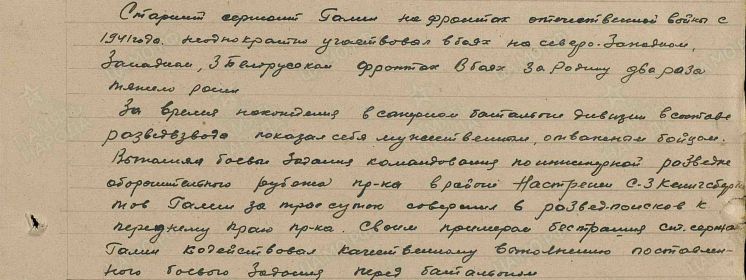 Старший сержант Галин на фронтах отечественной войны с
1941 года. неоднократно участвовал в боях на северо-Западном,
Западном, 3 Белорусском фронтах В боях за Родину два раза
тяжело ранен
За время нахождения в саперном батальоне дивизии в составе
разведвзвода показал себя мужественным, отважным бойцом.
Выполняя боевые задания командования по инженерной разведке
оборонительного рубежа пр-ка в районе С-З Кенигсберг
тов Галин за трое суток совершил 8 развед-поисков к
переднему краю пр-ка. Своим примером бесстрашия ст. сержа
Галин содействовал качественному выполнению поставлен-
ного боевого задания перед батальоном